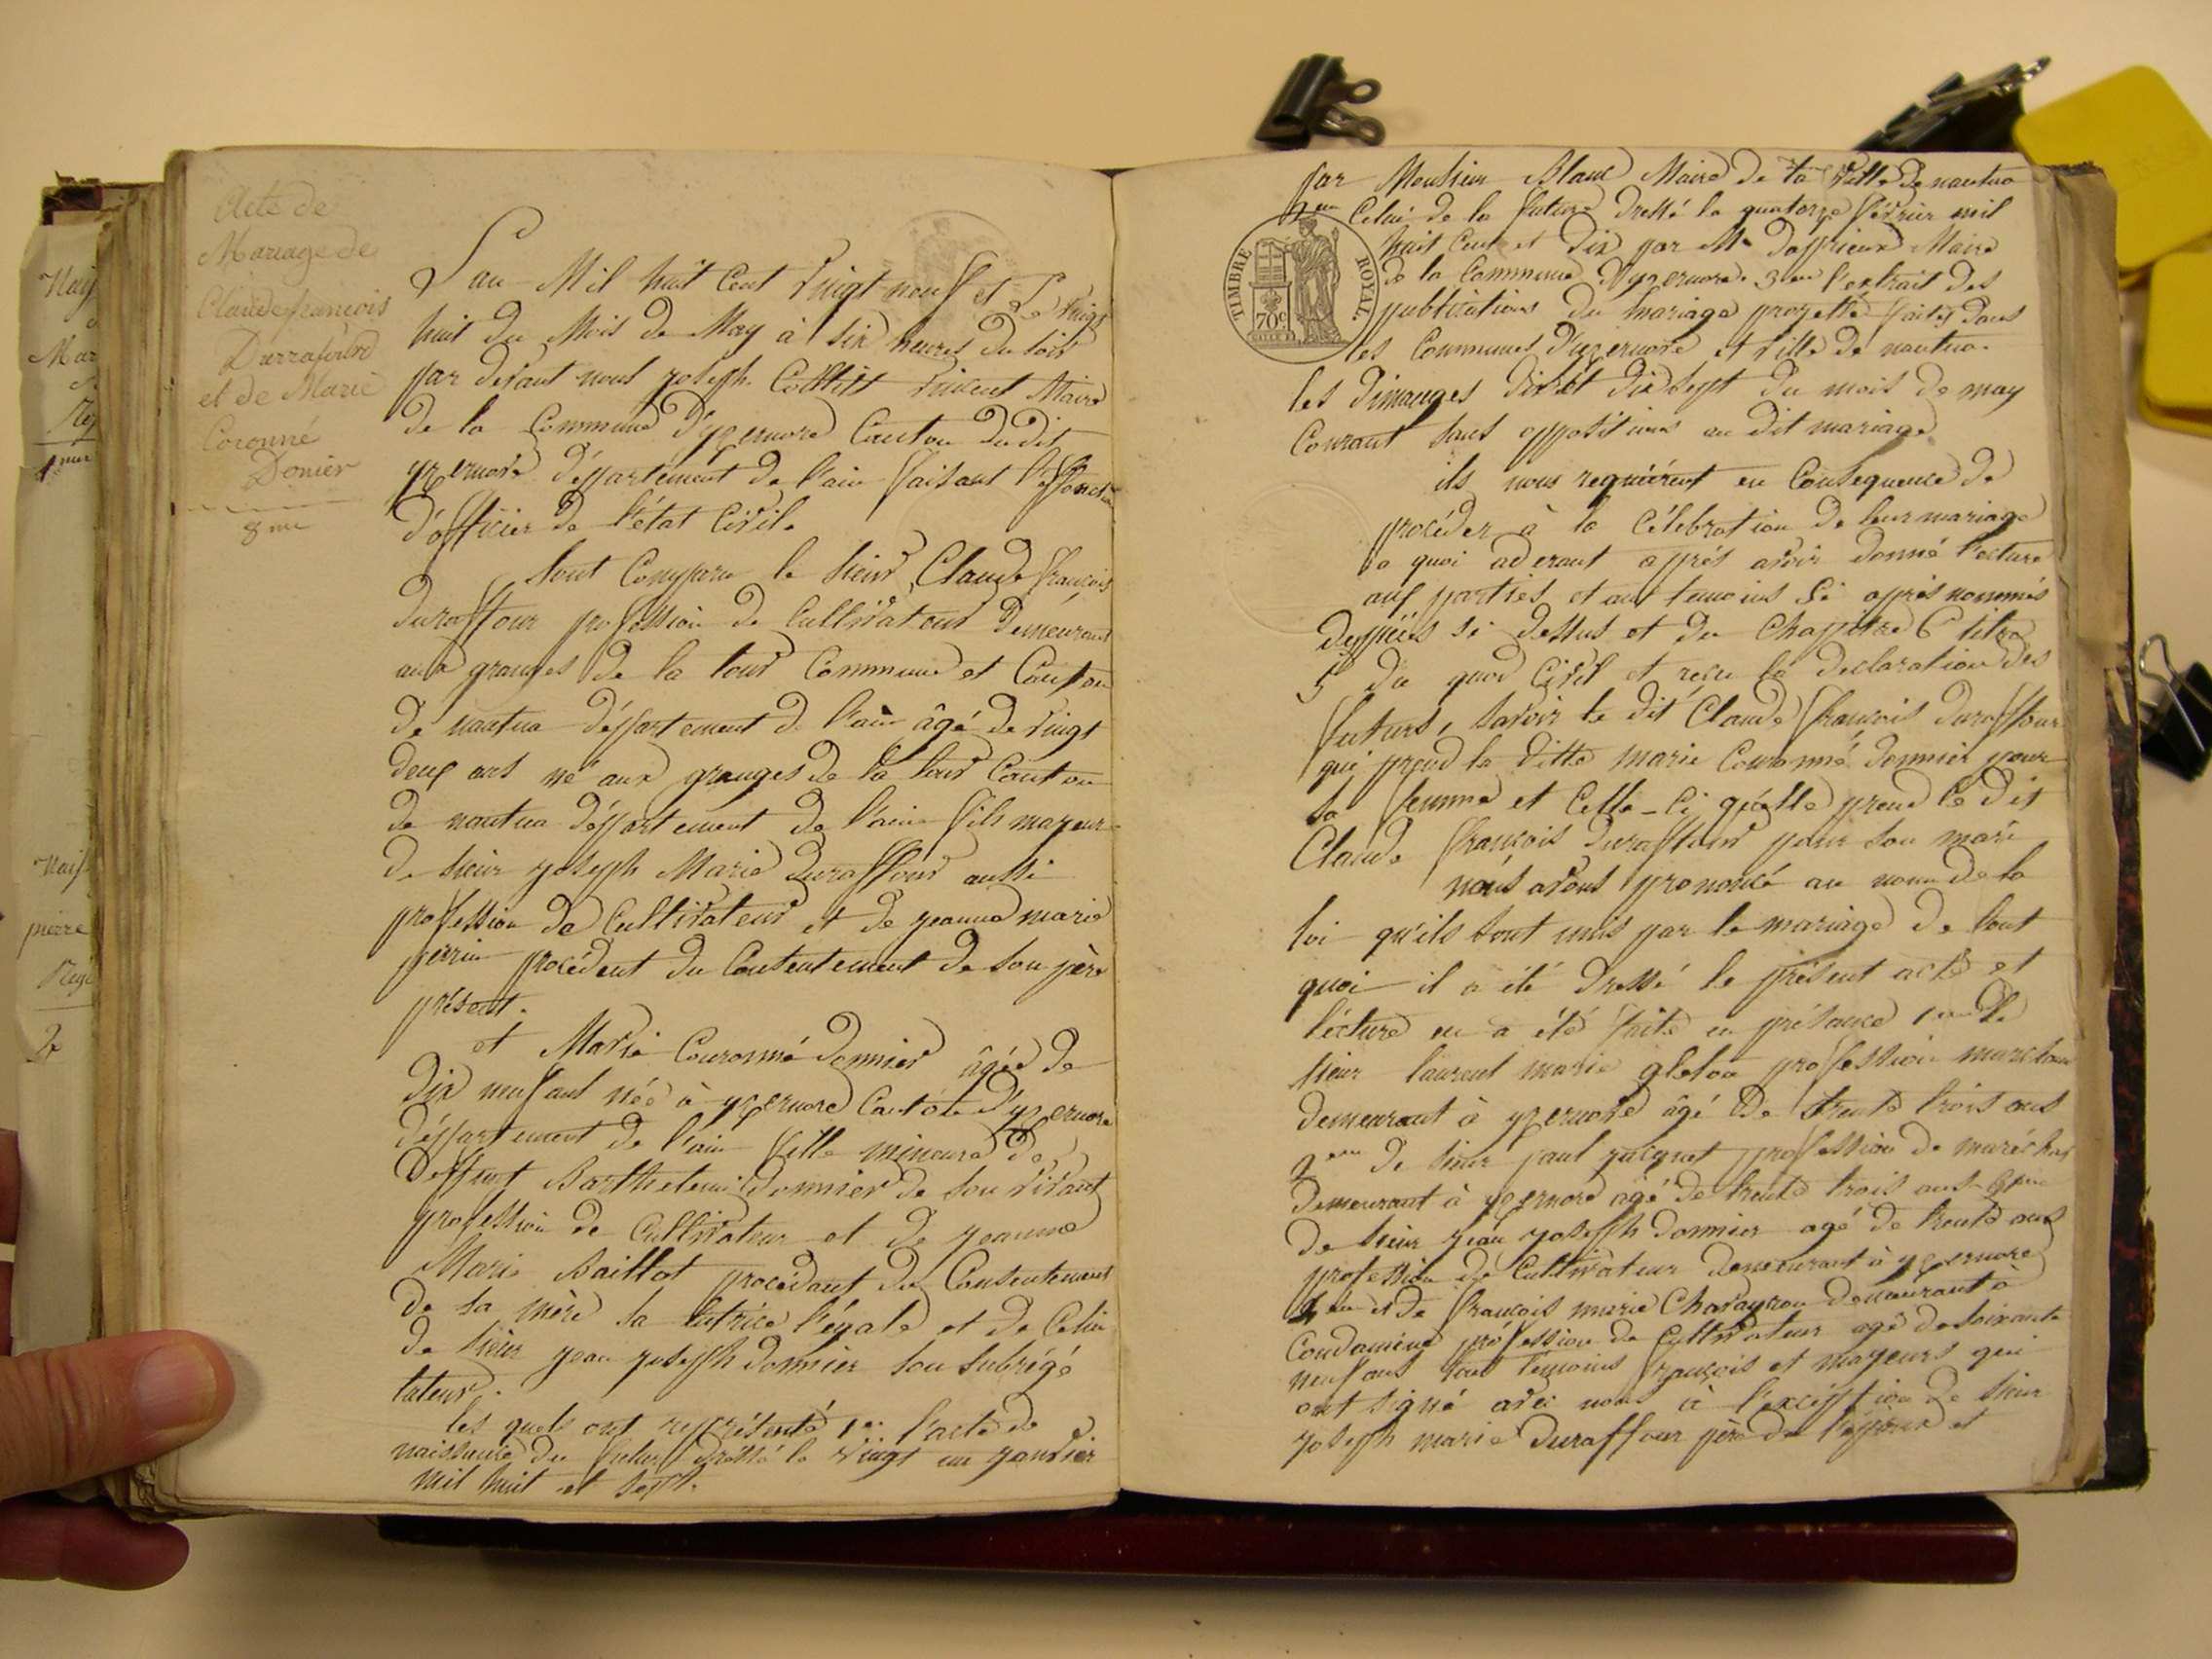 Acte de
Mariage de
Claude françois
Durrafourd
et de Marie
Coronné
Donier
8me
L'an Mil huit Cent Vingt neuf et Le Vingt
huit du Mois de May à Six heures du soir
par devant nous joseph Vincent Maire
de la Commune d'yzernore Canton du dit
yzernore département de l'ain faisant
d'officier de l'état Civil.
Sont Comparu le Sieur Claude françois
Duraffour profession de Cultivateur Demeurant
aux granges de la tour Commune et Canton
de nantua département de l'ain âgé de vingt
deux ans né aux granges de la tour Canton
de nantua département de l'ain fils mayeur
de Sieur joseph Marie Duraffour aussi
profession de Cultivateur et de jeanne marie
perrin procédent du Consentement de son père
présent.
et Marie Couronné Donnier âgée de
Dix neuf ans née à yzernore Canton d'yzernore
département de l'ain fille mineure de
Deffunt Barthelemi Donnier de son vivant
profession de Cultivateur et de jeanne
Marie Baillat procédant du Consentement
de sa mère sa tutrice légale et de Celui
de Sieur jean joseph Donnier son subrégé
tuteur.
les quels ont représenté 1er l'acte de
naissance du futur dressé le vingt un janvier
mil huit et sept.
par Monsieur Blanc Maire de la Ville de nantua
2em Celui de la future dressé le quatorze février mil
huit Cent et dix par Mr Maire
de la Commune d'yzernore. 3em l'extrait des
publications du mariage projetté faites dans
les Communes d'yzernore et ville de nantua.
les dimanges dix et dix sept du mois de may
Courant sans oppositions au dit mariage
ils nous requiérent en Consequence de
procéder à la Célebration de leur mariage
a quoi aderant après avoir donné lecture
aux parties et aux temoins Si après nommés
Si dessus et du Chapitre 6 titre
5 du quod Civil et reçu la declaration des
futurs, savoir le dit Claude françois duraffour
qui prend la ditte marie Couronné Donnier pour
sa femme et Celle-Ci qu'elle prend le dit
Claude françois duraffour pour son mari
nous avons prononcé au nom de la
loi qu'ils sont unis par le mariage de tout
quoi il a été dressé le présent acte et
lécture en a été faite en présence 1em De
Sieur laurent marie gleton profession marchand
demeurant à yzernore âgé de trente trois ans
2em De Sieur paul jacquet profession de maréchal
demeurant à yzernore agé de trente trois ans
De Sieur jean joseph donnier agé de trente ans
profession de Cultivateur demeurant à yzernore
4em et De françois marie Chavayron demeurant à
Condamine profession de Cultivateur agé de soixante
neuf ans tous temoins françois et mayeurs qui
ont signé avec nous à l'excéption de Sieur
joseph marie duraffour père de l'époux et
TIMBRE ROYAL.
70c